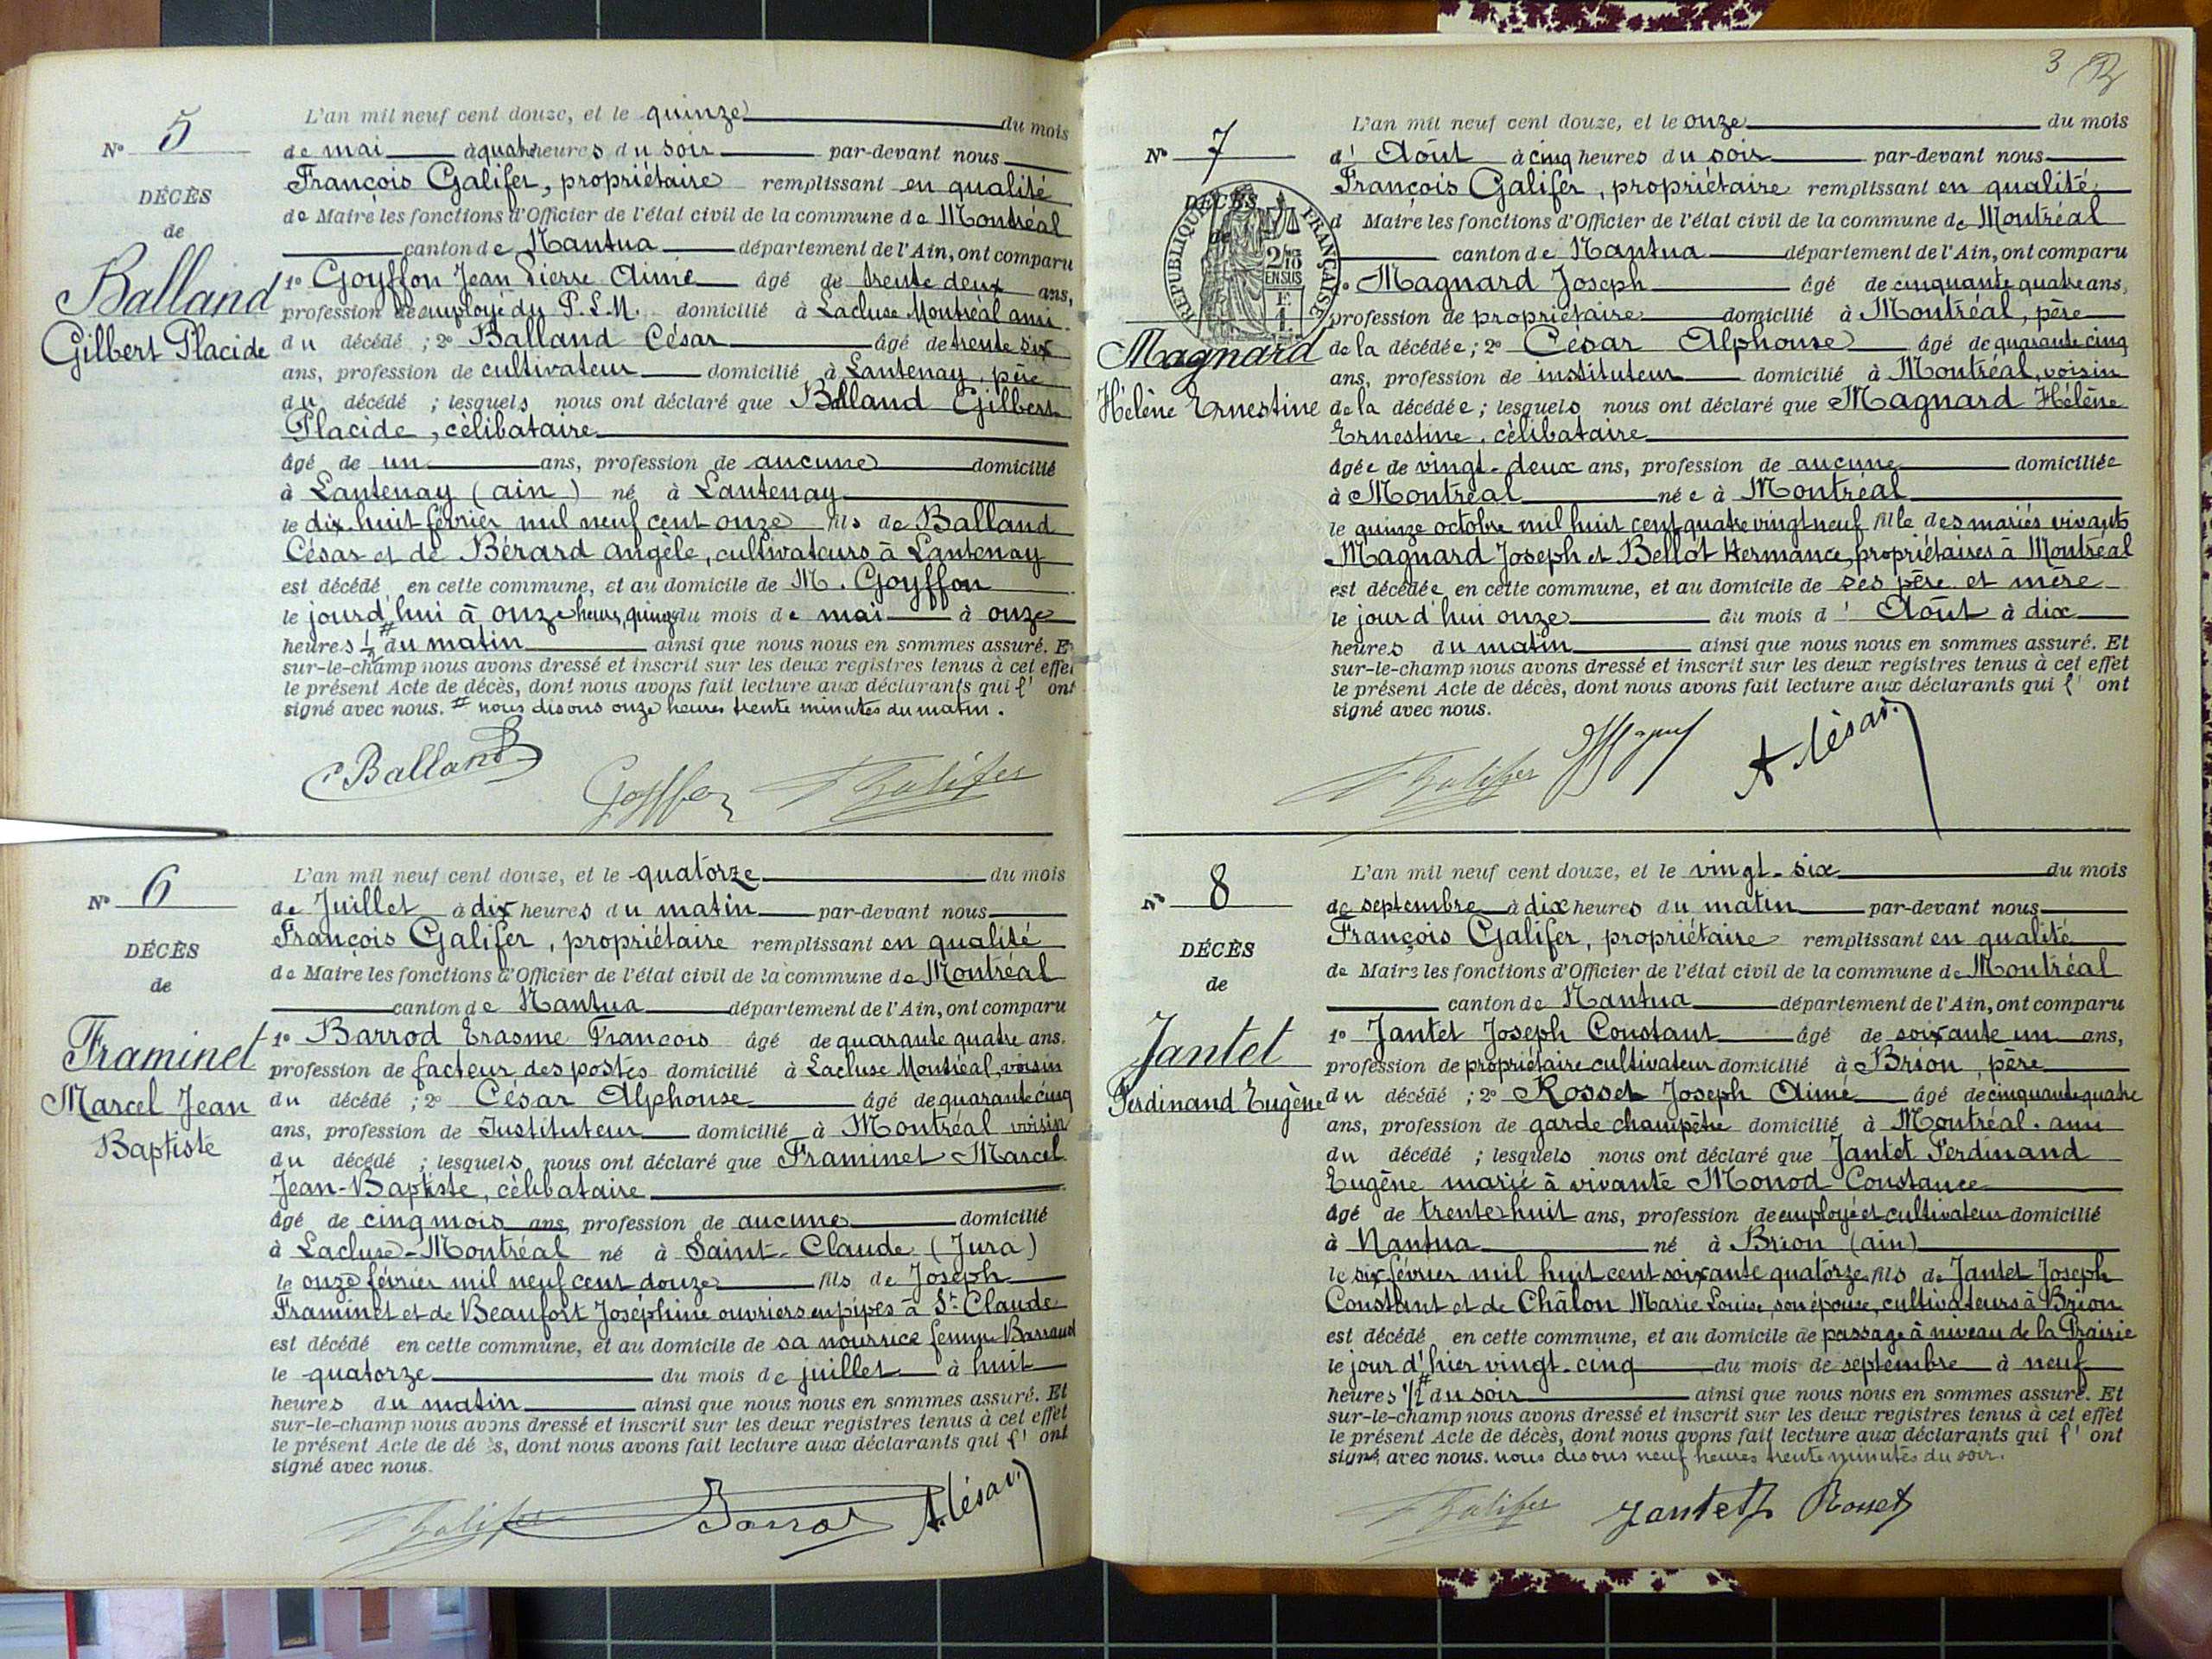 N° 5
DÉCÈS
de
Balland
Gilbert Placide
L'an mil neuf cent douze, et le quinze du mois
de mai à quatre heures du soir par-devant nous
François Galifer, propriétaire remplissant en qualité
de Maire les fonctions d'Officier de l'état civil de la commune de Montréal
canton de Nantua département de l'Ain, ont comparu
1° Goyffon Jean Pierre Aimé âgé de trente deux ans,
profession de employé du P.L.M. domicilié à Lacluse Montréal ami
du décédé ; 2° Balland César âgé de trente six
ans, profession de cultivateur domicilié à Lantenay, père
du décédé ; lesquels nous ont déclaré que Balland Gilbert
Placide, célibataire
âgé de un ans, profession de aucune domicilié
à Lantenay (ain) né à Lantenay
le dix-huit février mil neuf cent onze fils de Balland
César et de Bérard Angèle, cultivateurs à Lantenay
est décédé en cette commune, et au domicile de M. Goyffon
le jourd'hui à onze heures, quinze du mois de mai à onze
heures ½ # du matin ainsi que nous nous en sommes assuré. Et
sur-le-champ nous avons dressé et inscrit sur les deux registres tenus à cet effet
le présent Acte de décès, dont nous avons fait lecture aux déclarants qui l' ont
signé avec nous. # nous disons onze heures trente minutes du matin.
C Balland Goyffon F Galifer
N° 6
DÉCÈS
de
Framinet
Marcel Jean
Baptiste
L'an mil neuf cent douze, et le quatorze du mois
de Juillet à dix heures du matin par-devant nous
François Galifer, propriétaire remplissant en qualité
de Maire les fonctions d'Officier de l'état civil de la commune de Montréal
canton de Nantua département de l'Ain, ont comparu
1° Barrod Erasme François âgé de quarante quatre ans,
profession de facteur des postes domicilié à Lacluse Montréal, voisin
du décédé ; 2° César Alphonse âgé de quarante cinq
ans, profession de Instituteur domicilié à Montréal voisin
du décédé ; lesquels nous ont déclaré que Framinet Marcel
Jean-Baptiste, célibataire
âgé de cinq mois ans, profession de aucune domicilié
à Lacluse-Montréal né à Saint-Claude (Jura)
le onze février mil neuf cent douze fils de Joseph
Framinet et de Beaufort Joséphine ouvriers en pipes à St Claude
est décédé en cette commune, et au domicile de sa nourrice femme
le quatorze du mois de juillet à huit
heures du matin ainsi que nous nous en sommes assuré. Et
sur-le-champ nous avons dressé et inscrit sur les deux registres tenus à cet effet
le présent Acte de dé ès, dont nous avons fait lecture aux déclarants qui l' ont
signé avec nous.
F Galifer Barrod A. César
3
N° 7
DÉCÈS
de
RÉPUBLIQUE FRANÇAISE
2/10 EN SUS
Magnard
Hélène Ernestine
L'an mil neuf cent douze, et le onze du mois
d' Août à cinq heures du soir par-devant nous
François Galifer, propriétaire remplissant en qualité
d Maire les fonctions d'Officier de l'état civil de la commune de Montréal
canton de Nantua département de l'Ain, ont comparu
1° Magnard Joseph âgé de cinquante quatre ans,
profession de propriétaire domicilié à Montréal, père
de la décédée ; 2° César Alphonse âgé de quarante cinq
ans, profession de instituteur domicilié à Montréal, voisin
de la décédée ; lesquels nous ont déclaré que Magnard Hélène
Ernestine, célibataire
âgée de vingt-deux ans, profession de aucune domiciliée
à Montréal née à Montréal
le quinze octobre mil huit cent quatre vingt neuf fille des mariés vivants
Magnard Joseph et Bellot Hermance, propriétaires à Montréal
est décédée en cette commune, et au domicile de ses père et mère
le jour d'hui onze du mois d' Août à dix
heures du matin ainsi que nous nous en sommes assuré. Et
sur-le-champ nous avons dressé et inscrit sur les deux registres tenus à cet effet
le présent Acte de décès, dont nous avons fait lecture aux déclarants qui l' ont
signé avec nous.
F Galifer A. César
N° 8
DÉCÈS
de
Jantet
Ferdinand Eugène
L'an mil neuf cent douze, et le vingt-six du mois
de septembre à dix heures du matin par-devant nous
François Galifer, propriétaire remplissant en qualité
de Maire les fonctions d'Officier de l'état civil de la commune de Montréal
canton de Nantua département de l'Ain, ont comparu
1° Jantet Joseph Constant âgé de soixante un ans,
profession de propriétaire cultivateur domicilié à Brion, père
du décédé ; 2° Rosset Joseph Aimé âgé de cinquante quatre
ans, profession de garde champêtre domicilié à Montréal. ami
du décédé ; lesquels nous ont déclaré que Jantet Ferdinand
Eugène marié à vivante Monod Constance
âgé de trente huit ans, profession de employé et cultivateur domicilié
à Nantua né à Brion (ain)
le six février mil huit cent soixante quatorze fils de Jantet Joseph
Constant et de Châlon Marie Louise, son épouse, cultivateurs à Brion
est décédé en cette commune, et au domicile de passage à niveau de la Prairie
le jour d'hier vingt-cinq du mois de septembre à neuf
heures 1/2 # du soir ainsi que nous nous en sommes assuré. Et
sur-le-champ nous avons dressé et inscrit sur les deux registres tenus à cet effet
le présent Acte de décès, dont nous avons fait lecture aux déclarants qui l' ont
signé avec nous. nous disons neuf heures trente minutes du soir.
F Galifer Jantet Rosset